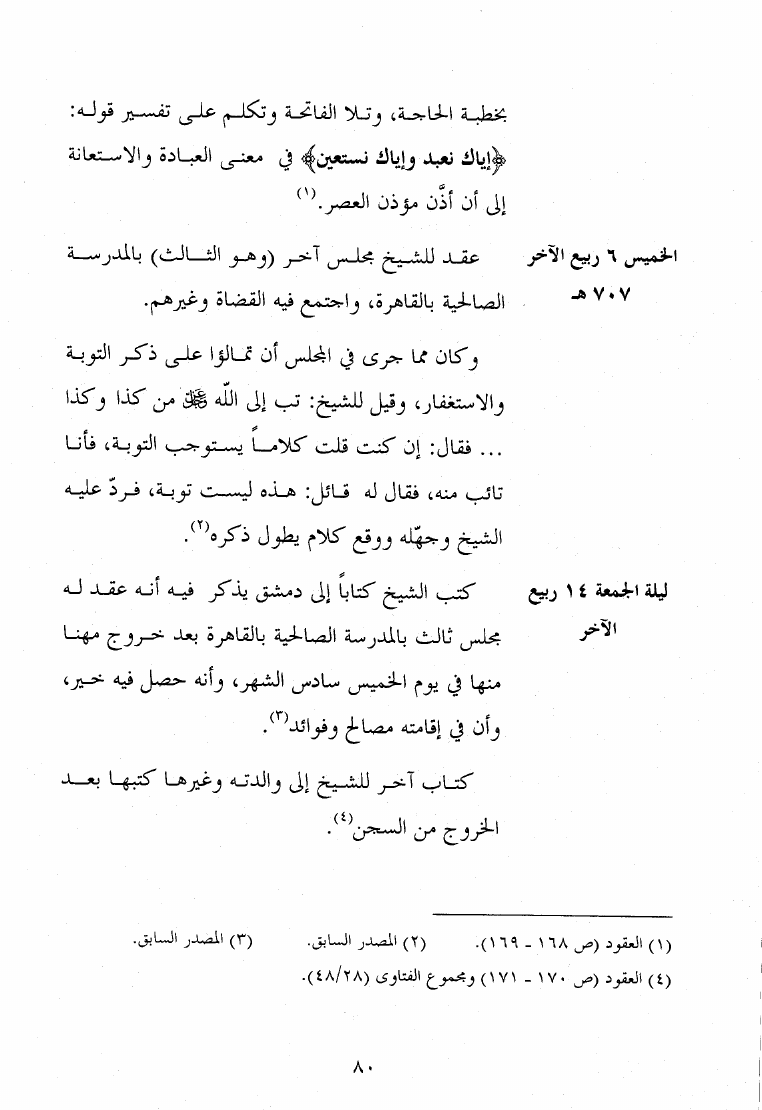 بخطبة الحاجة، وتلا الفاتحة وتكلم على تفسير قوله:
﴿إياك نعبد وإياك نستعين﴾ في معنى العبادة والاستعانة
إلى أن أذَّن مؤذن العصر.(١)
الخميس ٦ ربيع الآخر
٧٠٧ هـ
عقد للشيخ مجلس آخر (وهو الثالث) بالمدرسة
الصالحية بالقاهرة، واجتمع فيه القضاة وغيرهم.
وكان مما جرى في المجلس أن تمالؤا على ذكر التوبة
والاستغفار، وقيل للشيخ: تب إلى الله ﷿ من كذا وكذا
... فقال: إن كنت قلت كلاماً يستوجب التوبة، فأنا
تائب منه، فقال له قائل: هذه ليست توبة، فردّ عليه
الشيخ وجهّله ووقع كلام يطول ذكره(٢).
ليلة الجمعة ١٤ ربيع
الآخر
كتب الشيخ كتاباً إلى دمشق يذكر فيه أنه عقد له
مجلس ثالث بالمدرسة الصالحية بالقاهرة بعد خروج مهنا
منها في يوم الخميس سادس الشهر، وأنه حصل فيه خير،
وأن في إقامته مصالح وفوائد(٣).
كتاب آخر للشيخ إلى والدته وغيرها كتبها بعد
الخروج من السجن(٤).
(١) العقود (ص ١٦٨ - ١٦٩). (٢) المصدر السابق. (٣) المصدر السابق.
(٤) العقود (ص ١٧٠ - ١٧١) ومجموع الفتاوى (٤٨/٢٨).
٨٠